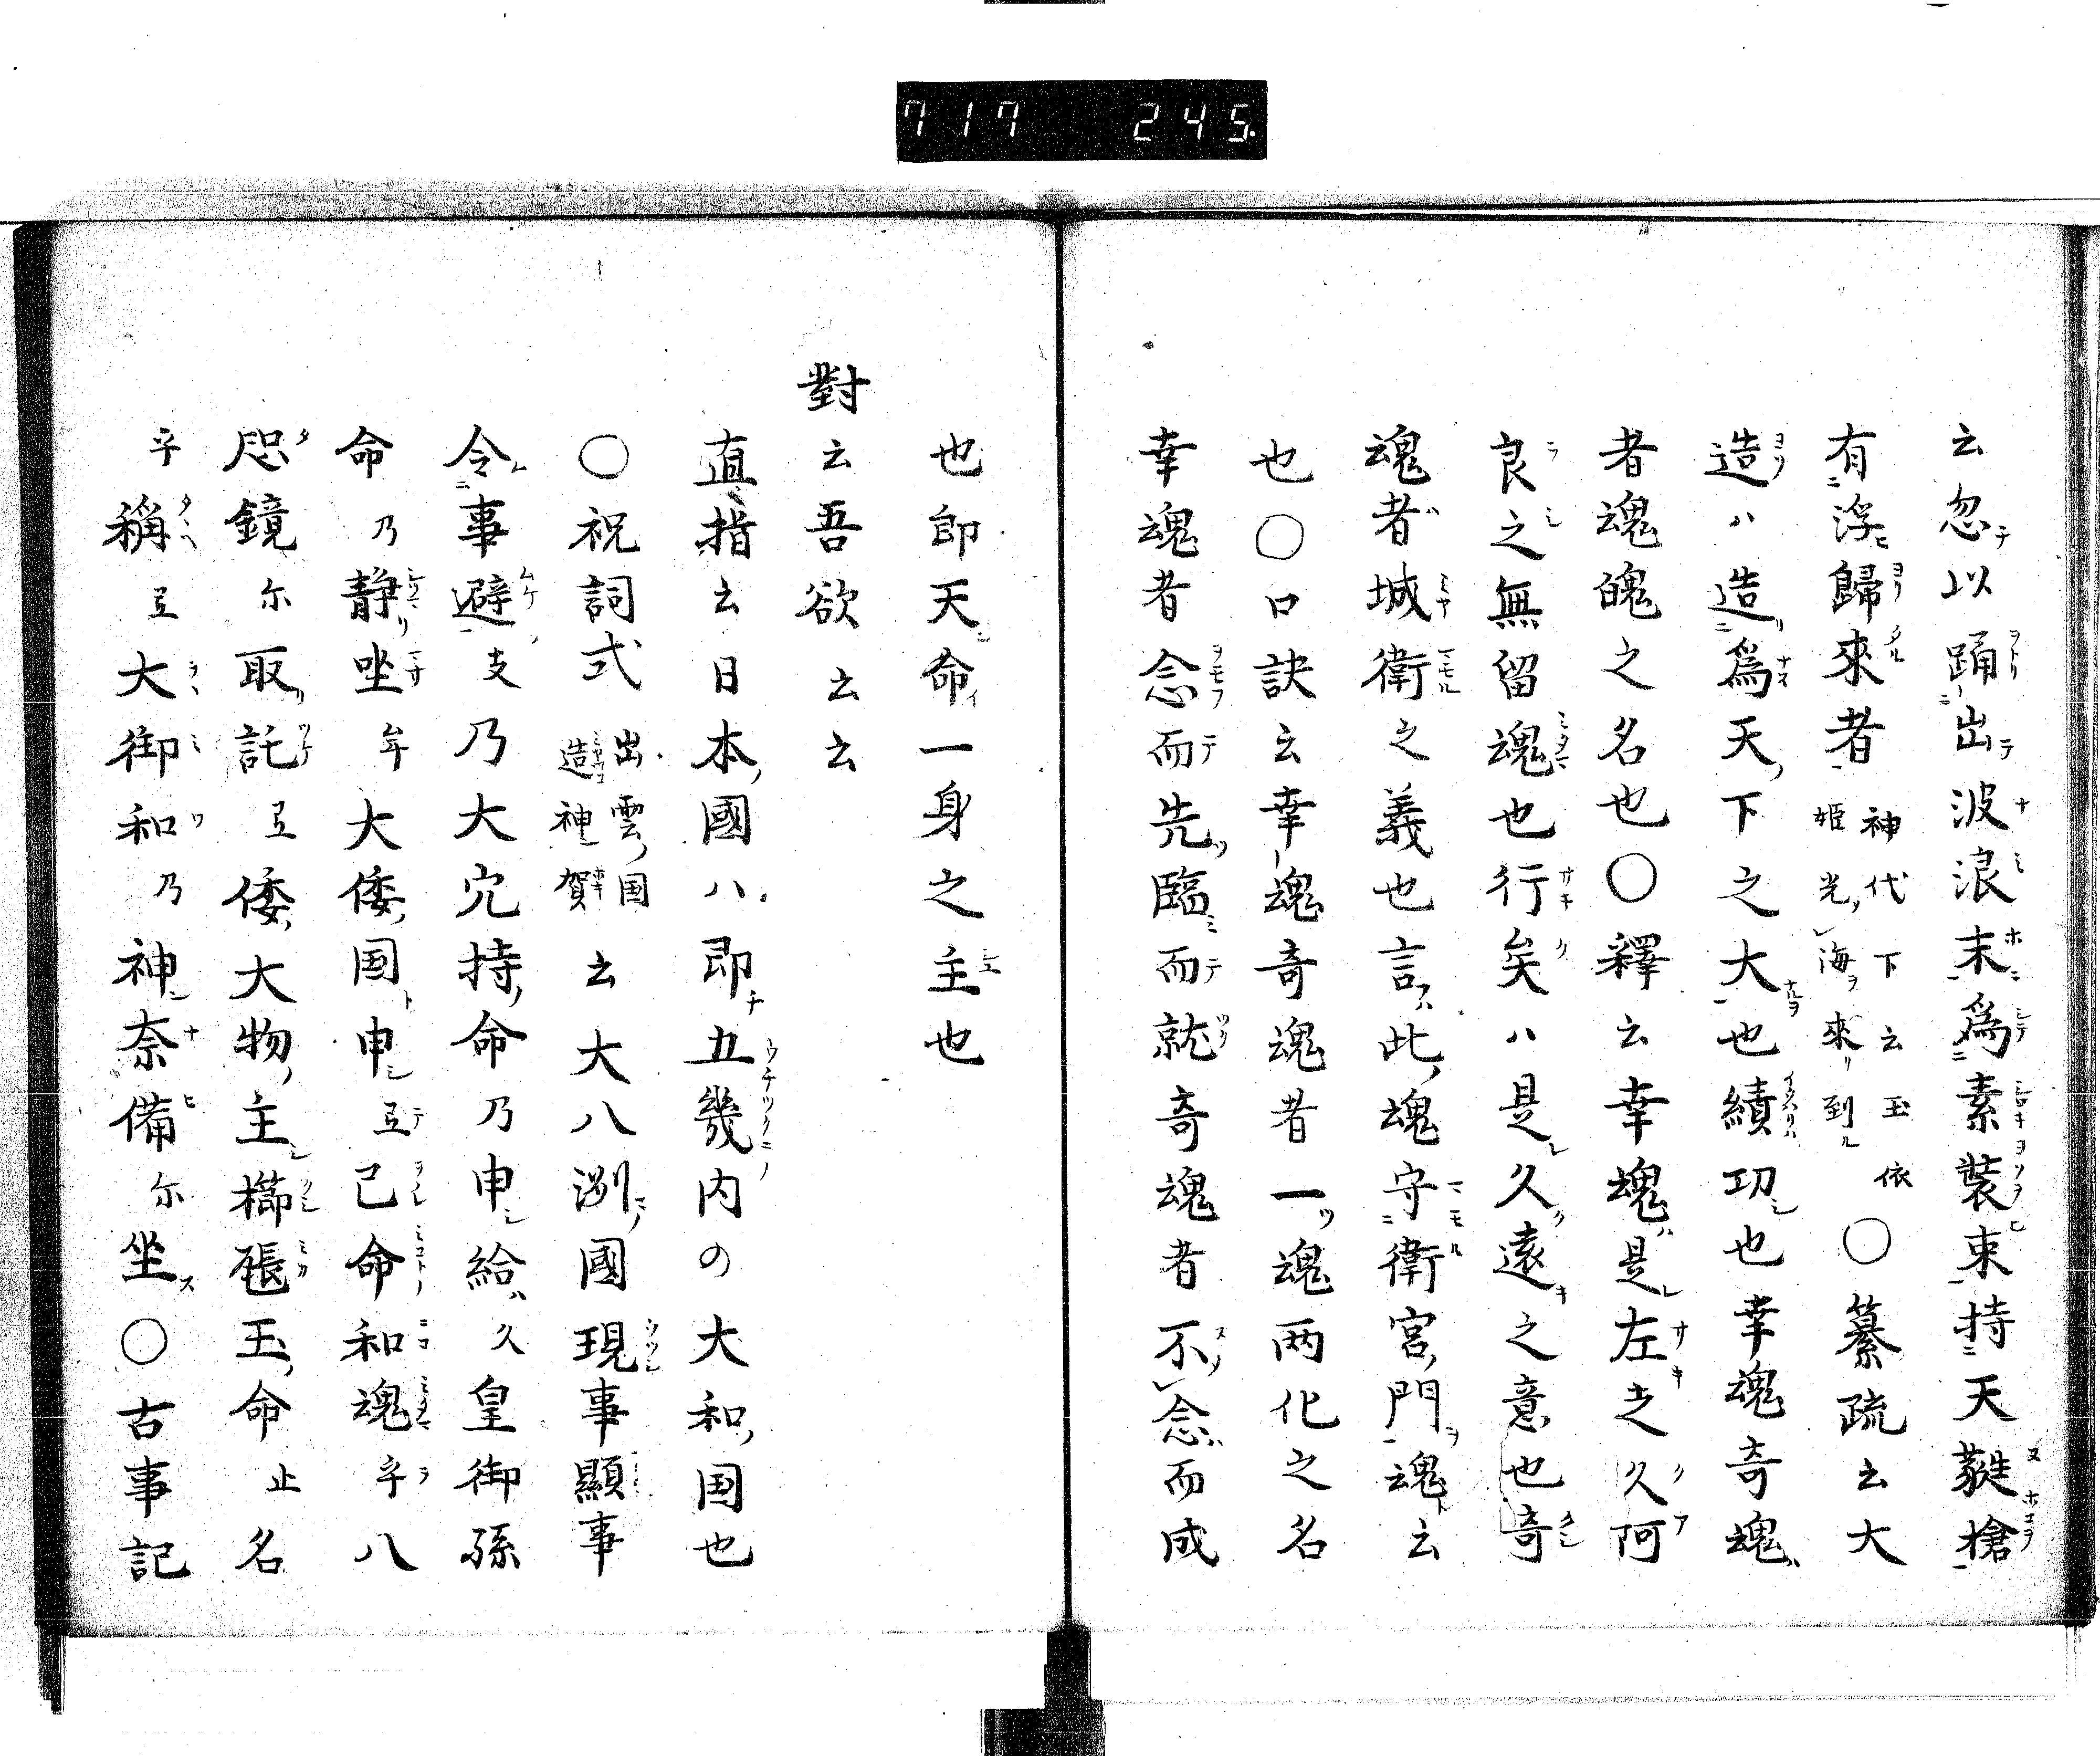 717 245
云忽以踊出波浪末為素装束持天蕤槍
有浮歸來者神代下云玉依姫光海來到〇纂疏云大
造ハ造為天下之大也績功也幸魂奇魂
者魂魄之名也〇釋云幸魂是左支久阿
良之無留魂也行矣ハ是久遠之意也奇
魂者城衛之義也言此魂守衛宮門魂云
也〇口訣云幸魂奇魂者一魂両化之名
幸魂者念而先臨而就奇魂者不念而成
也即天命一身之主也
對云吾欲云云
直指云日本國ハ即五畿内の大和国也
〇祝詞式出雲国造神賀云大八洲國現事顯事
令事避支乃大穴持命乃申給久皇御孫
命乃静坐牟大倭国申弖己命和魂乎八
咫鏡尓取託弖倭大物主櫛𤭖玉命止名
乎稱弖大御和乃神奈備尓坐〇古事記